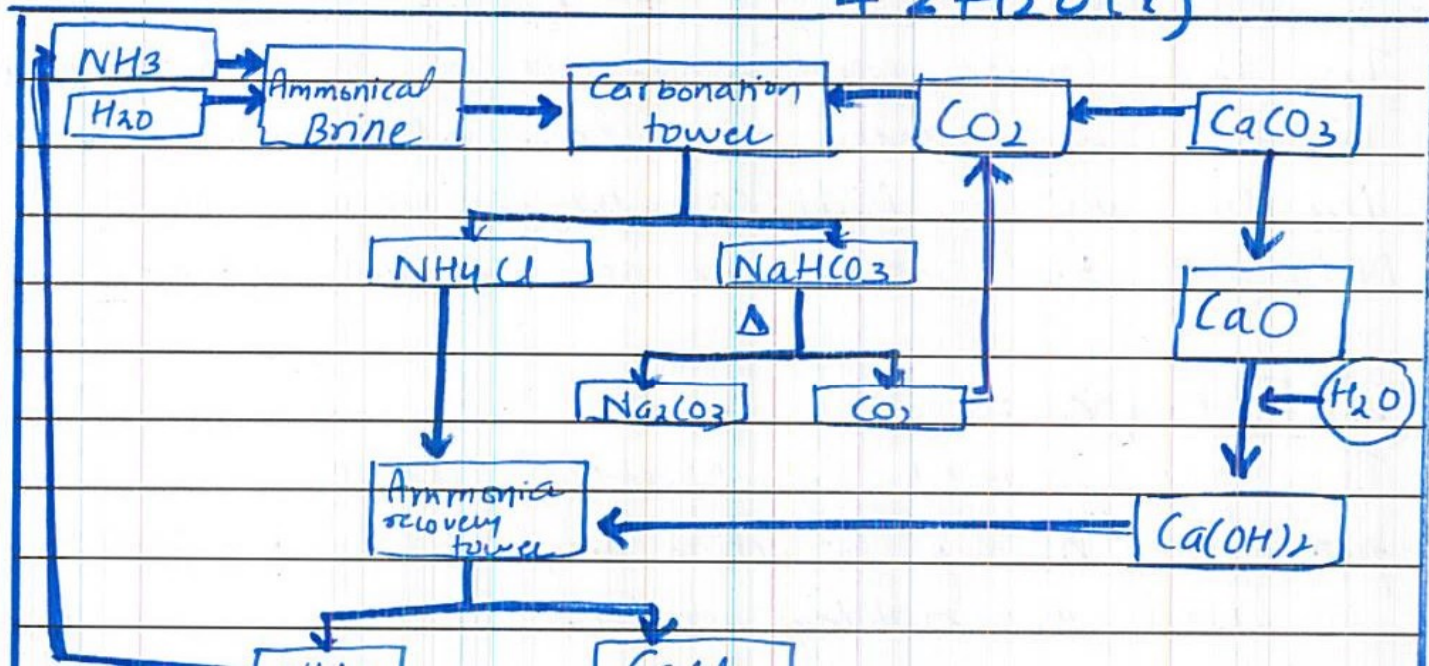 + 2H2O(l)
NH3
H2O
Ammonical
Brine
Carbonation
tower
CO2
CaCO3
NH4Cl
NaHCO3
Δ
CaO
Na2CO3
CO2
H2O
Ammonia
recovery
tower
Ca(OH)2